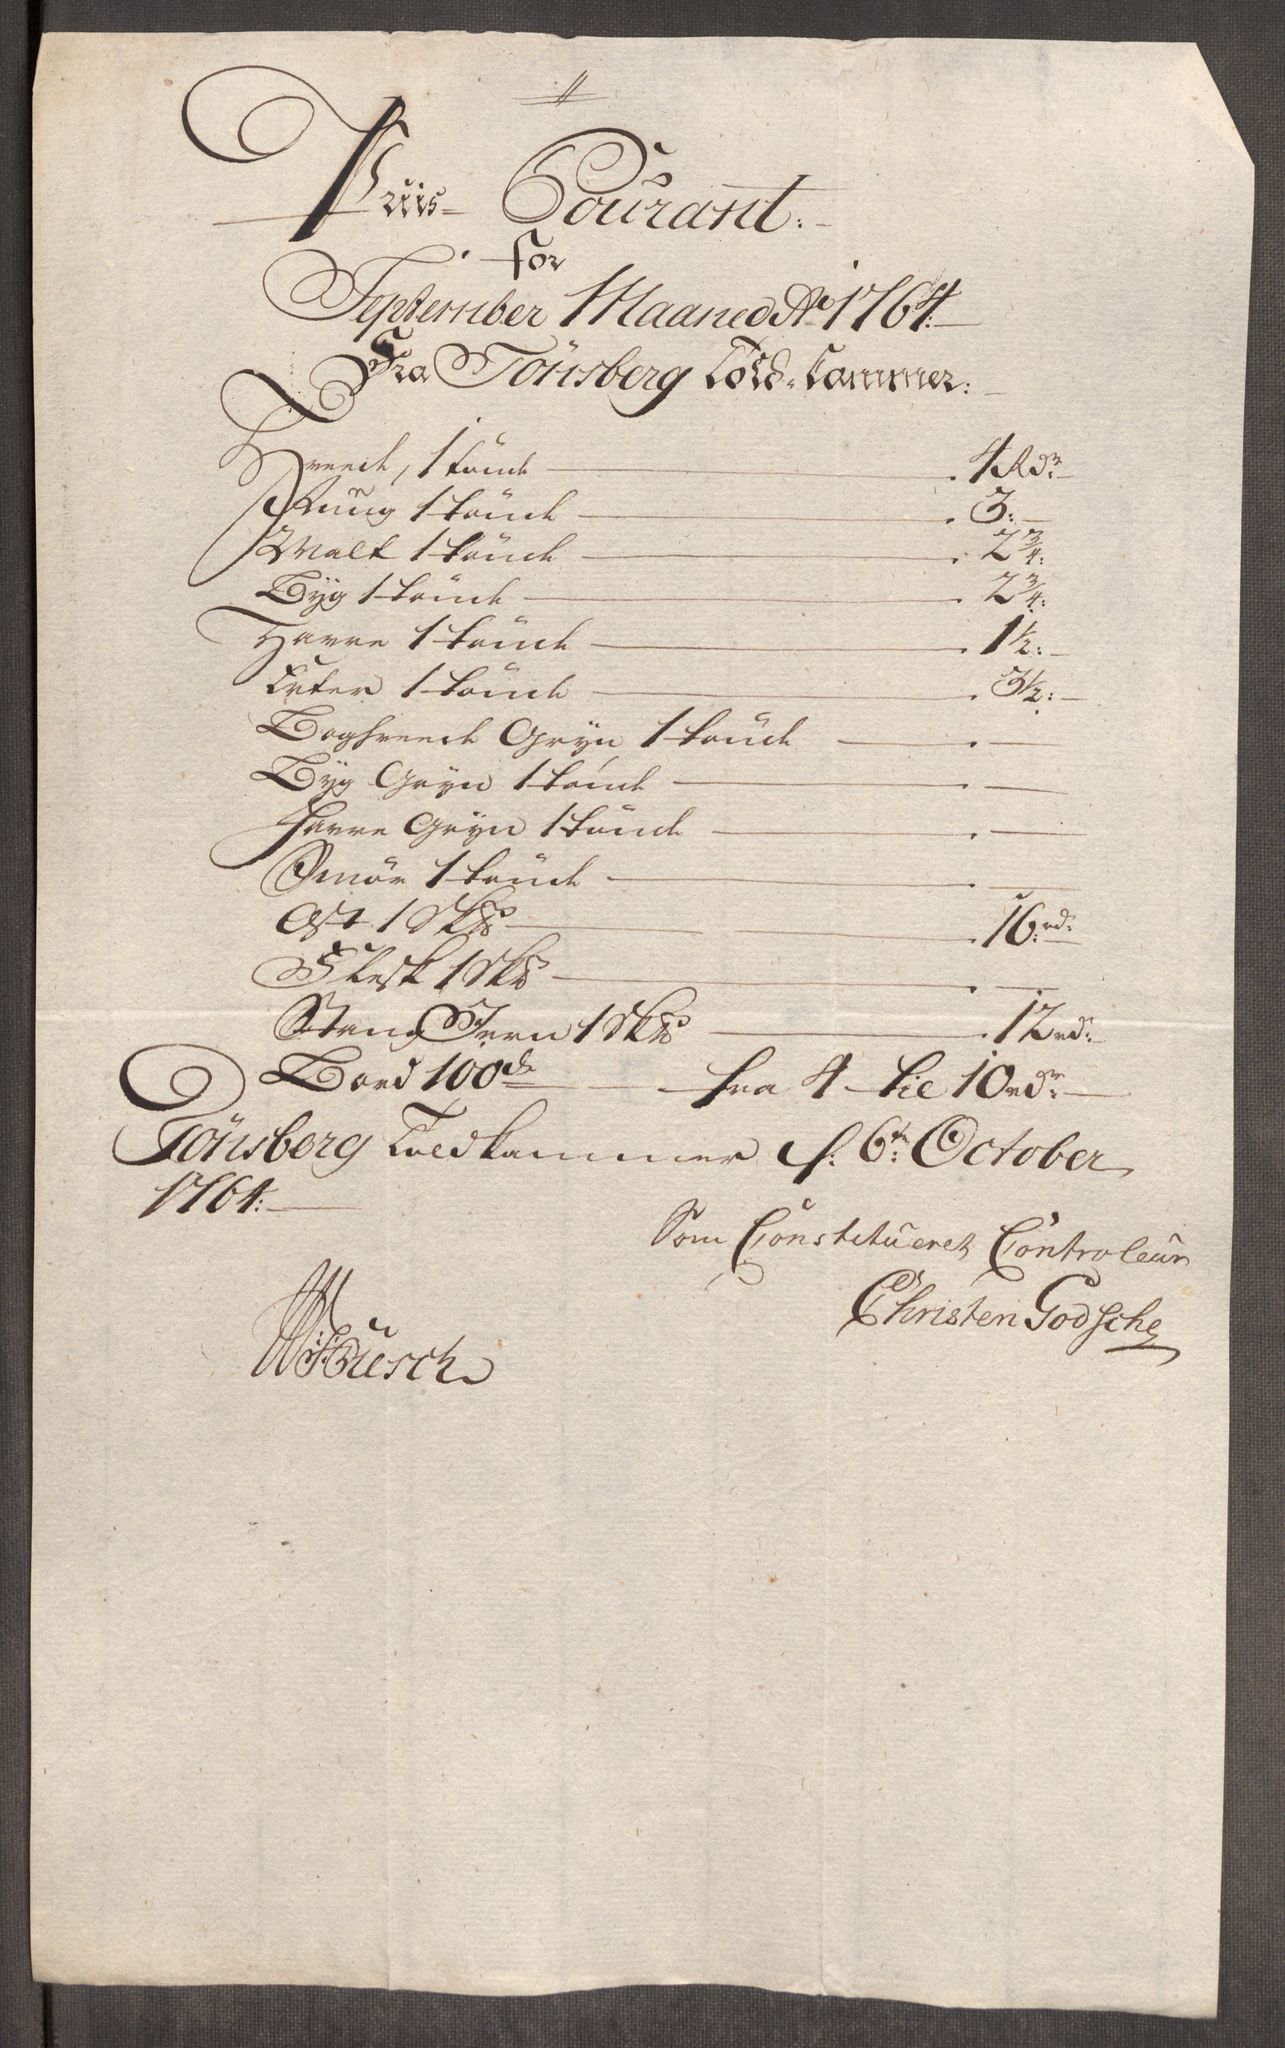 Priis- Courant:
for
September Maaned Ao 1764:
Fra Tönsberg Told-Cammer:
Hveede, 1 tönde . 4 Rdr:
Rüug 1 tönde . 3:
Malt 1 tönde . 2 3/4:
Byg 1 tönde . 2 3/4:
Havre 1 tönde . 1 1/2:
Erter 1 tönde . 3 1/2:
Boghveede Gryn 1 tönde .
Byg Gryn 1 tönde .
Havre Gryn 1 tönde .
Smör 1 tönde .
Ost 1 Sk℔ . 16 rd:
Flesk 1 Sk℔ .
Stang Jern 1 Sk℔ . 12 rd:
Bord 100de fra 4 til 10 rdr:
Tönsberg Toldkammer d: 6te October
1764:
Som Constitüeret Controleur
Christen Godsche
Büsch